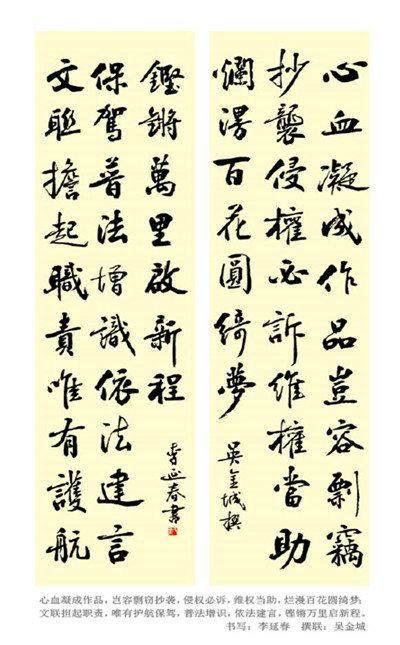 心血凝成作品豈容剽竊
抄襲侵權必訴維權當助
爛漫百花圓綺夢
吳金城撰
文聯擔起職責唯有護航
保駕普法增識依法建言
鏗鏘萬里啟新程
李延春書
心血凝成作品，岂容剽窃抄袭，侵权必诉，维权当助，烂漫百花圆绮梦；
文联担起职责，唯有护航保驾，普法增识，依法建言，铿锵万里启新程。
书写：李延春 撰联：吴金城